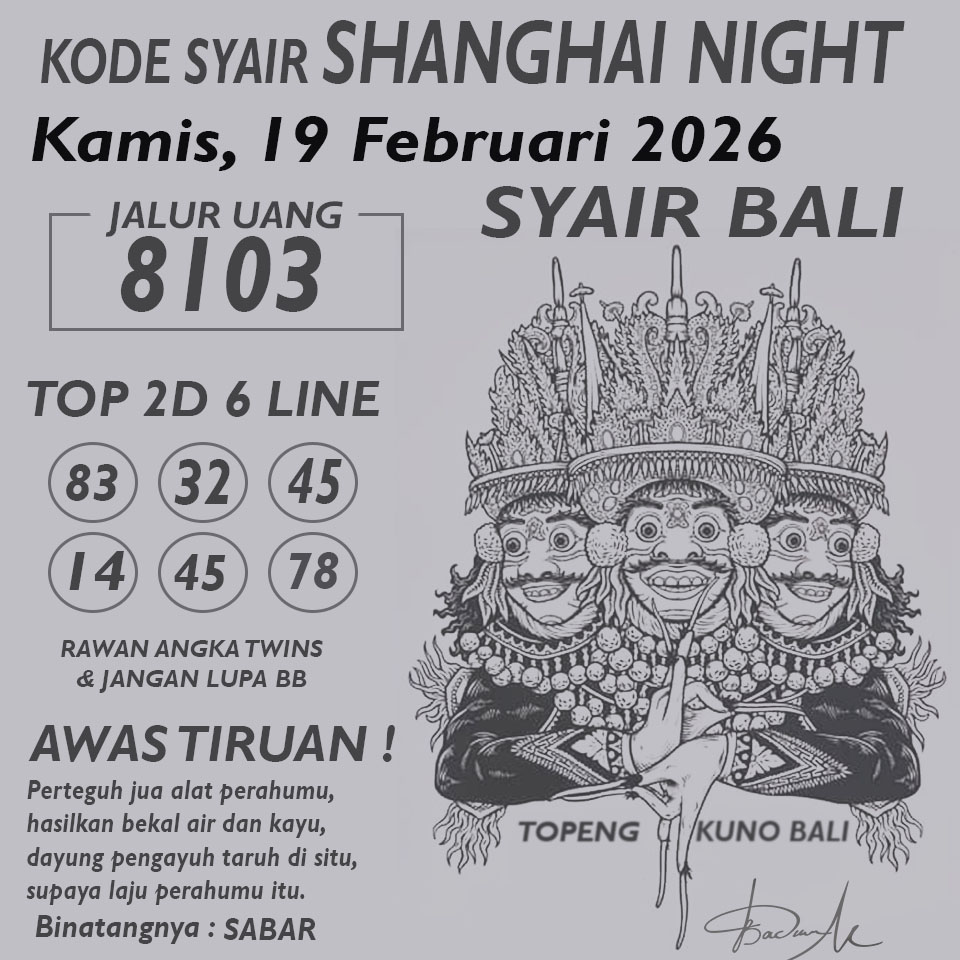 KODE SYAIR SHANGHAI NIGHT
Kamis, 19 Februari 2026
SYAIR BALI
JALUR UANG
8103
TOP 2D 6 LINE
83 32 45
14 45 78
RAWAN ANGKA TWINS
& JANGAN LUPA BB
AWAS TIRUAN !
Perteguh jua alat perahumu,
hasilkan bekal air dan kayu,
dayung pengayuh taruh di situ,
supaya laju perahumu itu.
Binatangnya : SABAR
TOPENG KUNO BALI